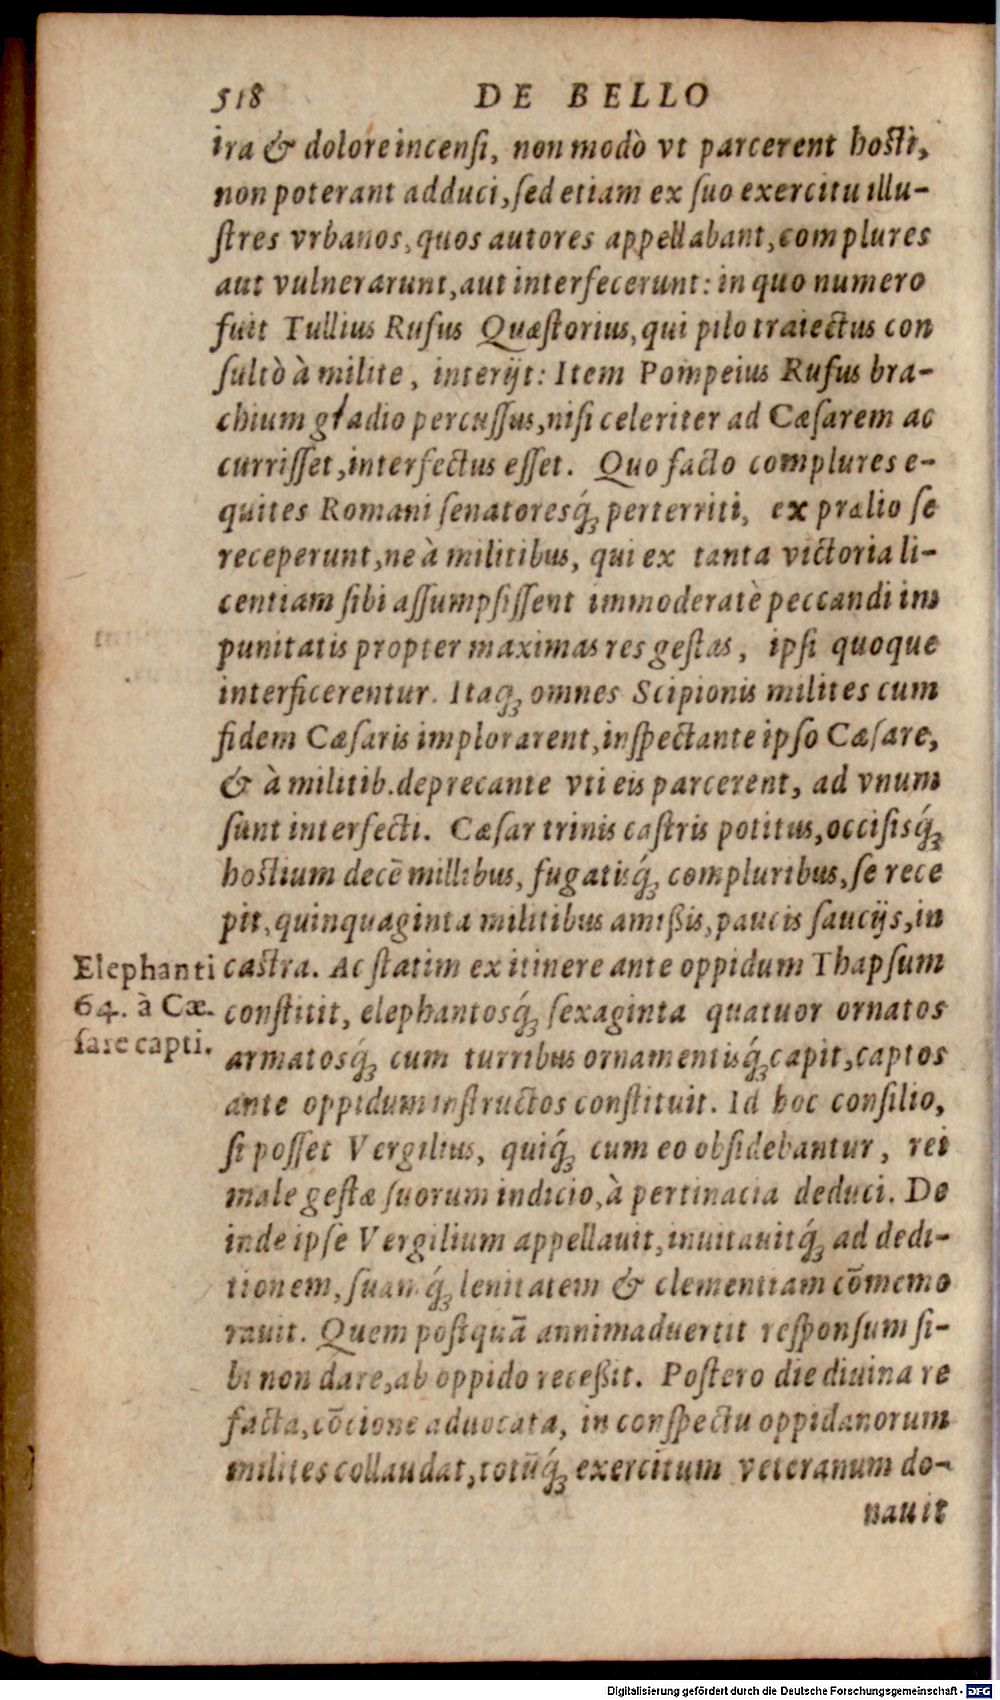 518 DE BELLO
ira & dolore incensi, non modò vt parcerent hosti,
non poterant adduci, ſed etiam ex ſuo exercitu illu-
ſtres vrbanos, quos autores appellabant, complures
aut vulnerarunt, aut interfecerunt: in quo numero
fuit Tullius Rufus Quæſtorius, qui pilo traiectus con
ſultò à milite, interijt: Item Pompeius Rufus bra-
chium gladio percuſſus, niſi celeriter ad Cæſarem ac
curriſſet, interfectus eſſet. Quo facto complures e-
quites Romani ſenatoresq́; perterriti, ex prælio ſe
receperunt, ne à militibus, qui ex tanta victoria li-
centiam ſibi aſſumpſiſſent immoderatè peccandi im
punitatis propter maximas res geſtas, ipſi quoque
interficerentur. Itaq; omnes Scipionis milites cum
fidem Cæſaris implorarent, inſpectante ipſo Cæſare,
& à militib. deprecante vti eis parcerent, ad vnum
ſunt interfecti. Cæſar trinis caſtris potitus, occiſisq́;
hostium decē millibus, fugatisq́; compluribus, ſe rece
pit, quinquaginta militibus amißis, paucis ſaucijs, in
castra. Ac ſtatim ex itinere ante oppidum Thapſum
Elephanti
64. à Cæ-
ſare capti.
conſtitit, elephantosq́; ſexaginta quatuor ornatos
armatosq́; cum turribus ornamentisq́; capit, captos
ante oppidum inſtructos conſtituit. Id hoc conſilio,
ſi poſſet Vergilius, quiq́; cum eo obſidebantur, rei
male geſtæ ſuorum indicio, à pertinacia deduci. De
inde ipſe Vergilium appellauit, inuitauitq́; ad dedi-
tionem, ſuamq́; lenitatem & clementiam cōmemo
rauit. Quem poſtquā annimaduertit reſponſum ſi-
bi non dare, ab oppido receßit. Poſtero die diuina re
facta, cōcione aduocata, in conſpectu oppidanorum
milites collaudat, totūq́; exercitum veteranum do-
nauit
Digitalisierung gefördert durch die Deutsche Forschungsgemeinschaft - DFG